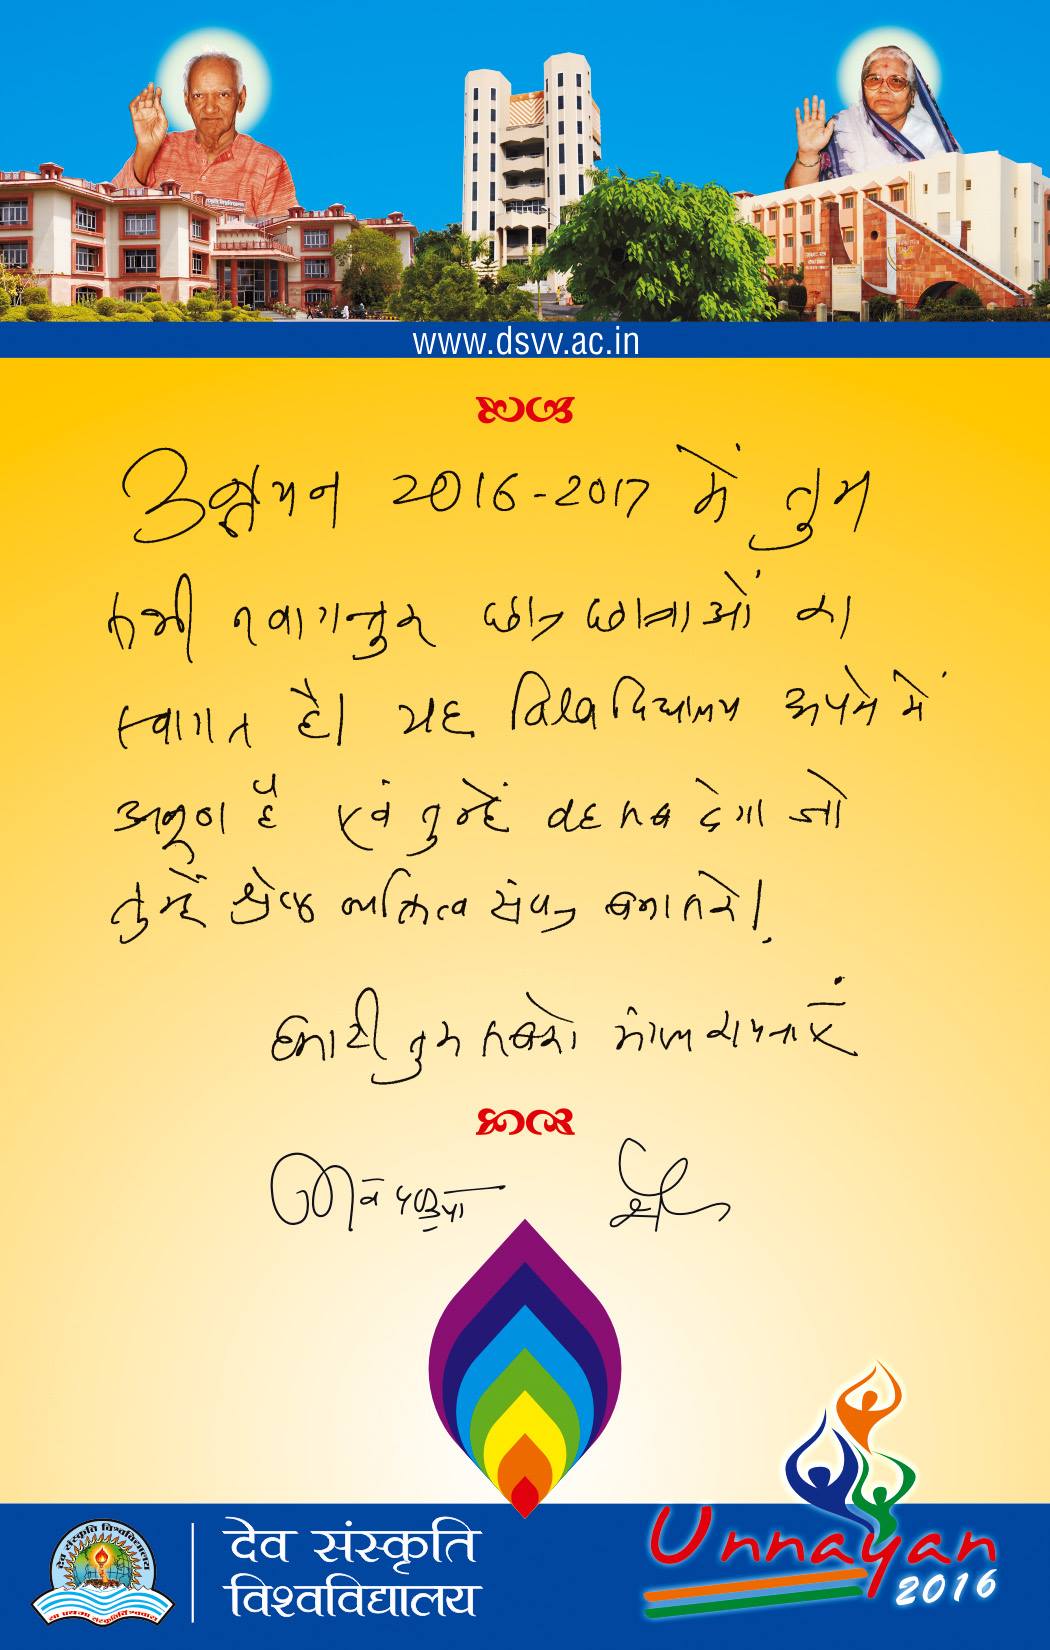 www.dsvv.ac.in
उन्नयन 2016-2017 में तुम
सभी नवागन्तुक छात्र छात्राओं का
स्वागत है। यह विश्वविद्यालय अपने में
अनूठा है एवं तुम्हें वह सब देगा जो
तुम्हें श्रेष्ठ व्यक्तित्व संपन्न बना सके।
हमारी तुम सबको मंगल कामनाएं
देव संस्कृति विश्वविद्यालय
देव संस्कृति
विश्वविद्यालय
Unnayan
2016